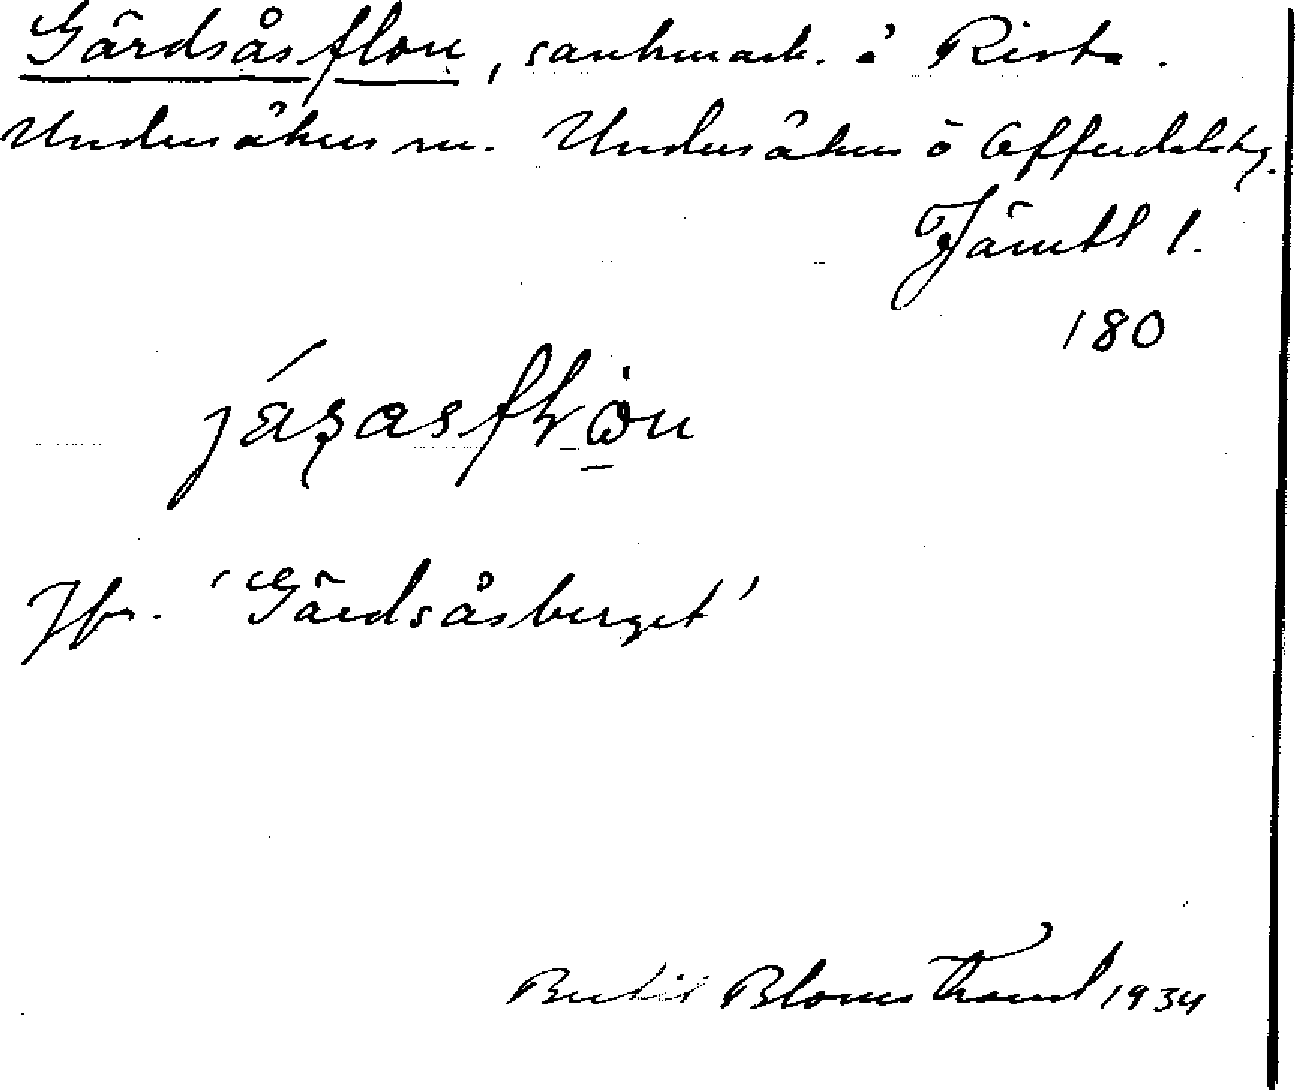 Gärdsåsflon, sankmark. å Rista.
Undersåkers sn. Undersåkers o Offerdals tg.
Jämtl l.
180
Jfr. 'Gärdsåsberget'
Bertil Blomstrand 1934